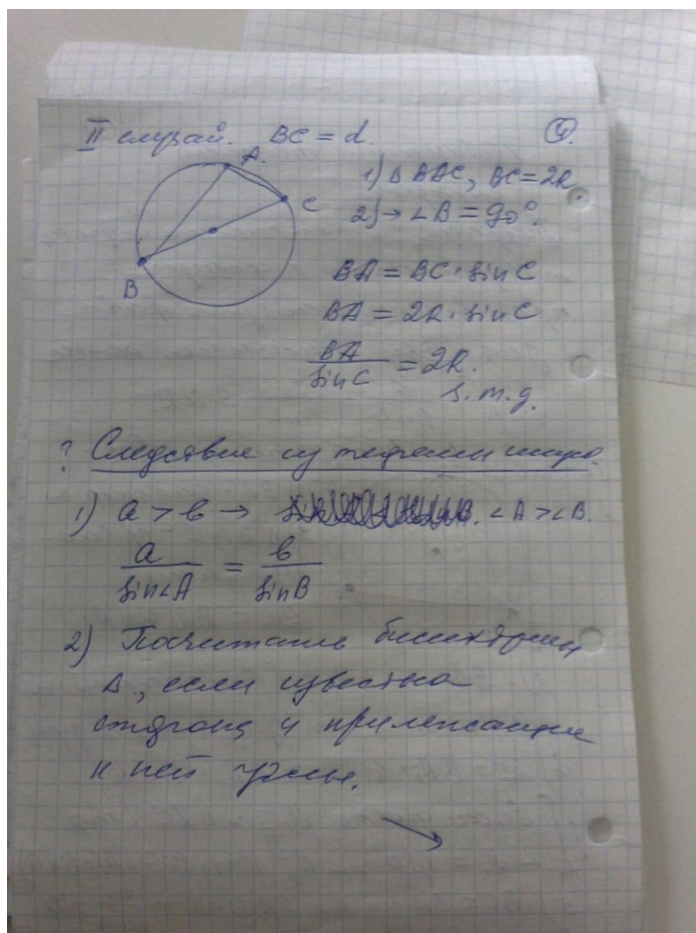 II случай. BC = d.
4.
A.
C
B
1) Δ BAC, BC = 2R.
2) → ∠B = 90°.
BA = BC · sin C
BA = 2R · sin C
BA / sin C = 2R.
ч.т.д.
? Следствия из теоремы
1) a > b → ∠A > ∠B.
a / sin∠A = b / sin B
2) Посчитать биссектрисы
Δ, если известна
сторона и прилежащие
к ней углы.
→